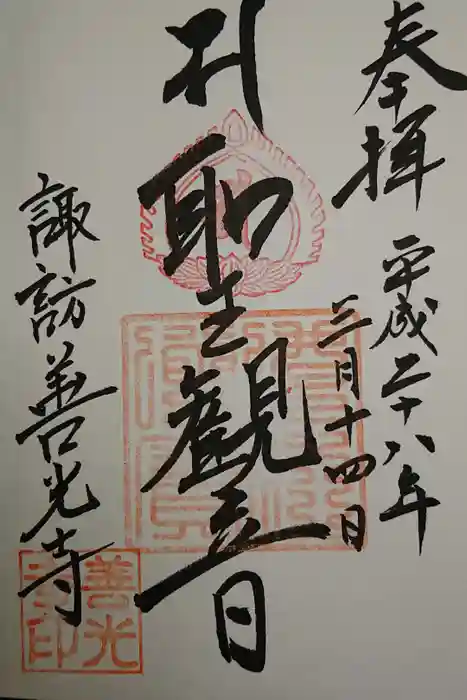 奉拝
平成二十八年
三月十四日
聖観音
諏訪善光寺
善光
印